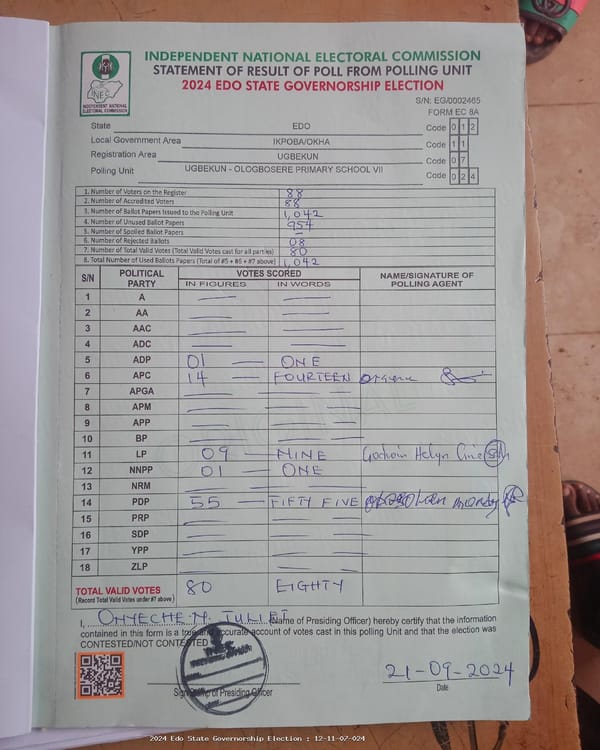 INDEPENDENT NATIONAL ELECTORAL COMMISSION
STATEMENT OF RESULT OF POLL FROM POLLING UNIT
2024 EDO STATE GOVERNORSHIP ELECTION
INDEPENDENT NATIONAL ELECTORAL COMMISSION
S/N: EG/0002465
FORM EC 8A
State EDO Code 0 1 2
Local Government Area IKPOBA/OKHA Code 1 1
Registration Area UGBEKUN Code 0 7
Polling Unit UGBEKUN - OLOGBOSERE PRIMARY SCHOOL VII Code 0 2 4
1. Number of Voters on the Register 88
2. Number of Accredited Voters 88
3. Number of Ballot Papers Issued to the Polling Unit 1,042
4. Number of Unused Ballot Papers 954
5. Number of Spoiled Ballot Papers —
6. Number of Rejected Ballots 08
7. Number of Total Valid Votes (Total Valid Votes cast for all parties) 80
8. Total Number of Used Ballots Papers (Total of #5 + #6 + #7 above) 1,042
S/N POLITICAL PARTY VOTES SCORED NAME/SIGNATURE OF POLLING AGENT
IN FIGURES IN WORDS
1 A — —
2 AA — —
3 AAC — —
4 ADC — —
5 ADP 01 — ONE
6 APC 14 — FOURTEEN
7 APGA — —
8 APM — —
9 APP — —
10 BP — —
11 LP 09 — NINE
12 NNPP 01 — ONE
13 NRM — —
14 PDP 55 — FIFTY FIVE
15 PRP — —
16 SDP — —
17 YPP — —
18 ZLP — —
TOTAL VALID VOTES 80 EIGHTY
(Record Total Valid Votes under #7 above)
I, ONYECHE M. JULIET (Name of Presiding Officer) hereby certify that the information
contained in this form is a true and accurate account of votes cast in this polling Unit and that the election was
CONTESTED/NOT CONTESTED
21-09-2024
Sign/Stamp of Presiding Officer Date
2024 Edo State Governorship Election : 12-11-07-024